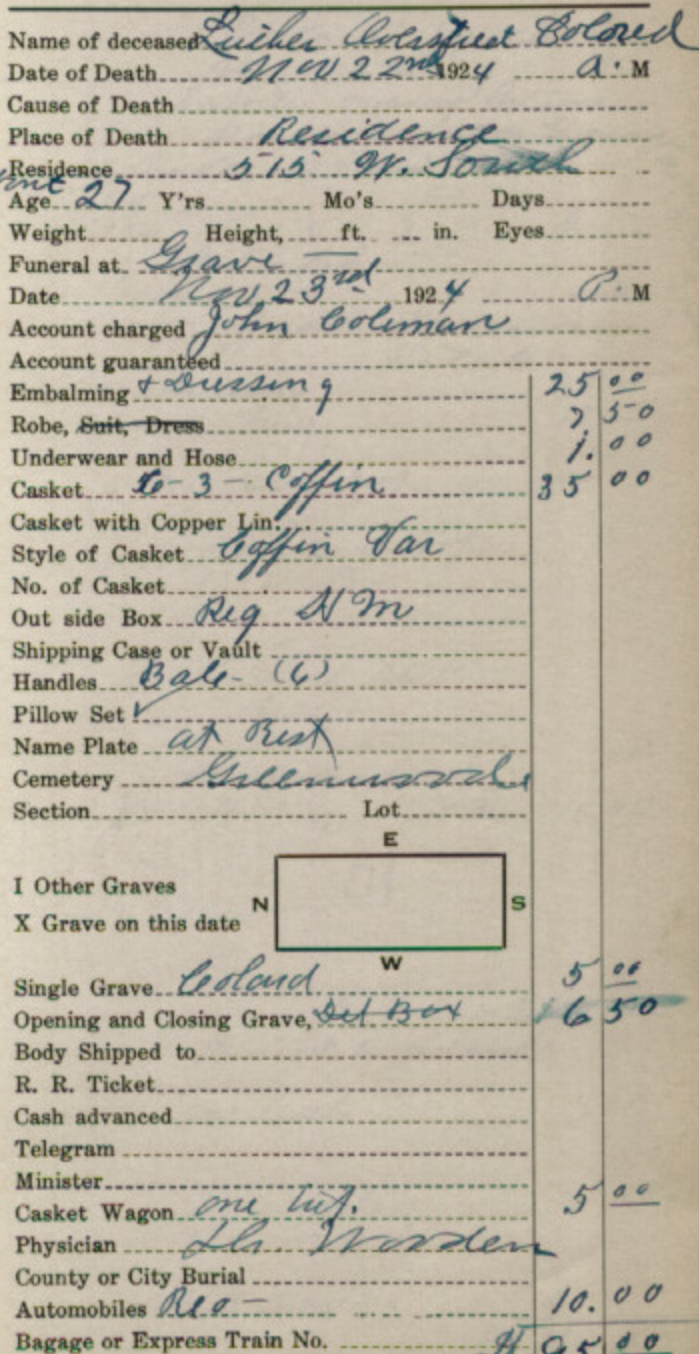 Name of deceased Luther Colored
Date of Death Nov 22nd 1924 A. M
Cause of Death
Place of Death Residence
Residence 515 W. South
Age 27 Y'rs Mo's Days
Weight Height, ft. in. Eyes
Funeral at Grave
Date Nov 23rd 1924 P. M
Account charged John Coleman
Account guaranteed
Embalming + Dressing 25 00
Robe, Suit, Dress 7 50
Underwear and Hose 1. 00
Casket 6-3- Coffin 35 00
Casket with Copper Lin.
Style of Casket Coffin Var
No. of Casket
Out side Box Reg H M
Shipping Case or Vault
Handles Bale- (6)
Pillow Set ✓
Name Plate at Rest
Cemetery
Section Lot
E
I Other Graves
N S
X Grave on this date
W
Single Grave Colard 5 00
Opening and Closing Grave, Del Box 6 50
Body Shipped to
R. R. Ticket
Cash advanced
Telegram
Minister
Casket Wagon one 5 00
Physician Dr. Worden
County or City Burial
Automobiles Reo- 10. 00
Bagage or Express Train No. 95 00